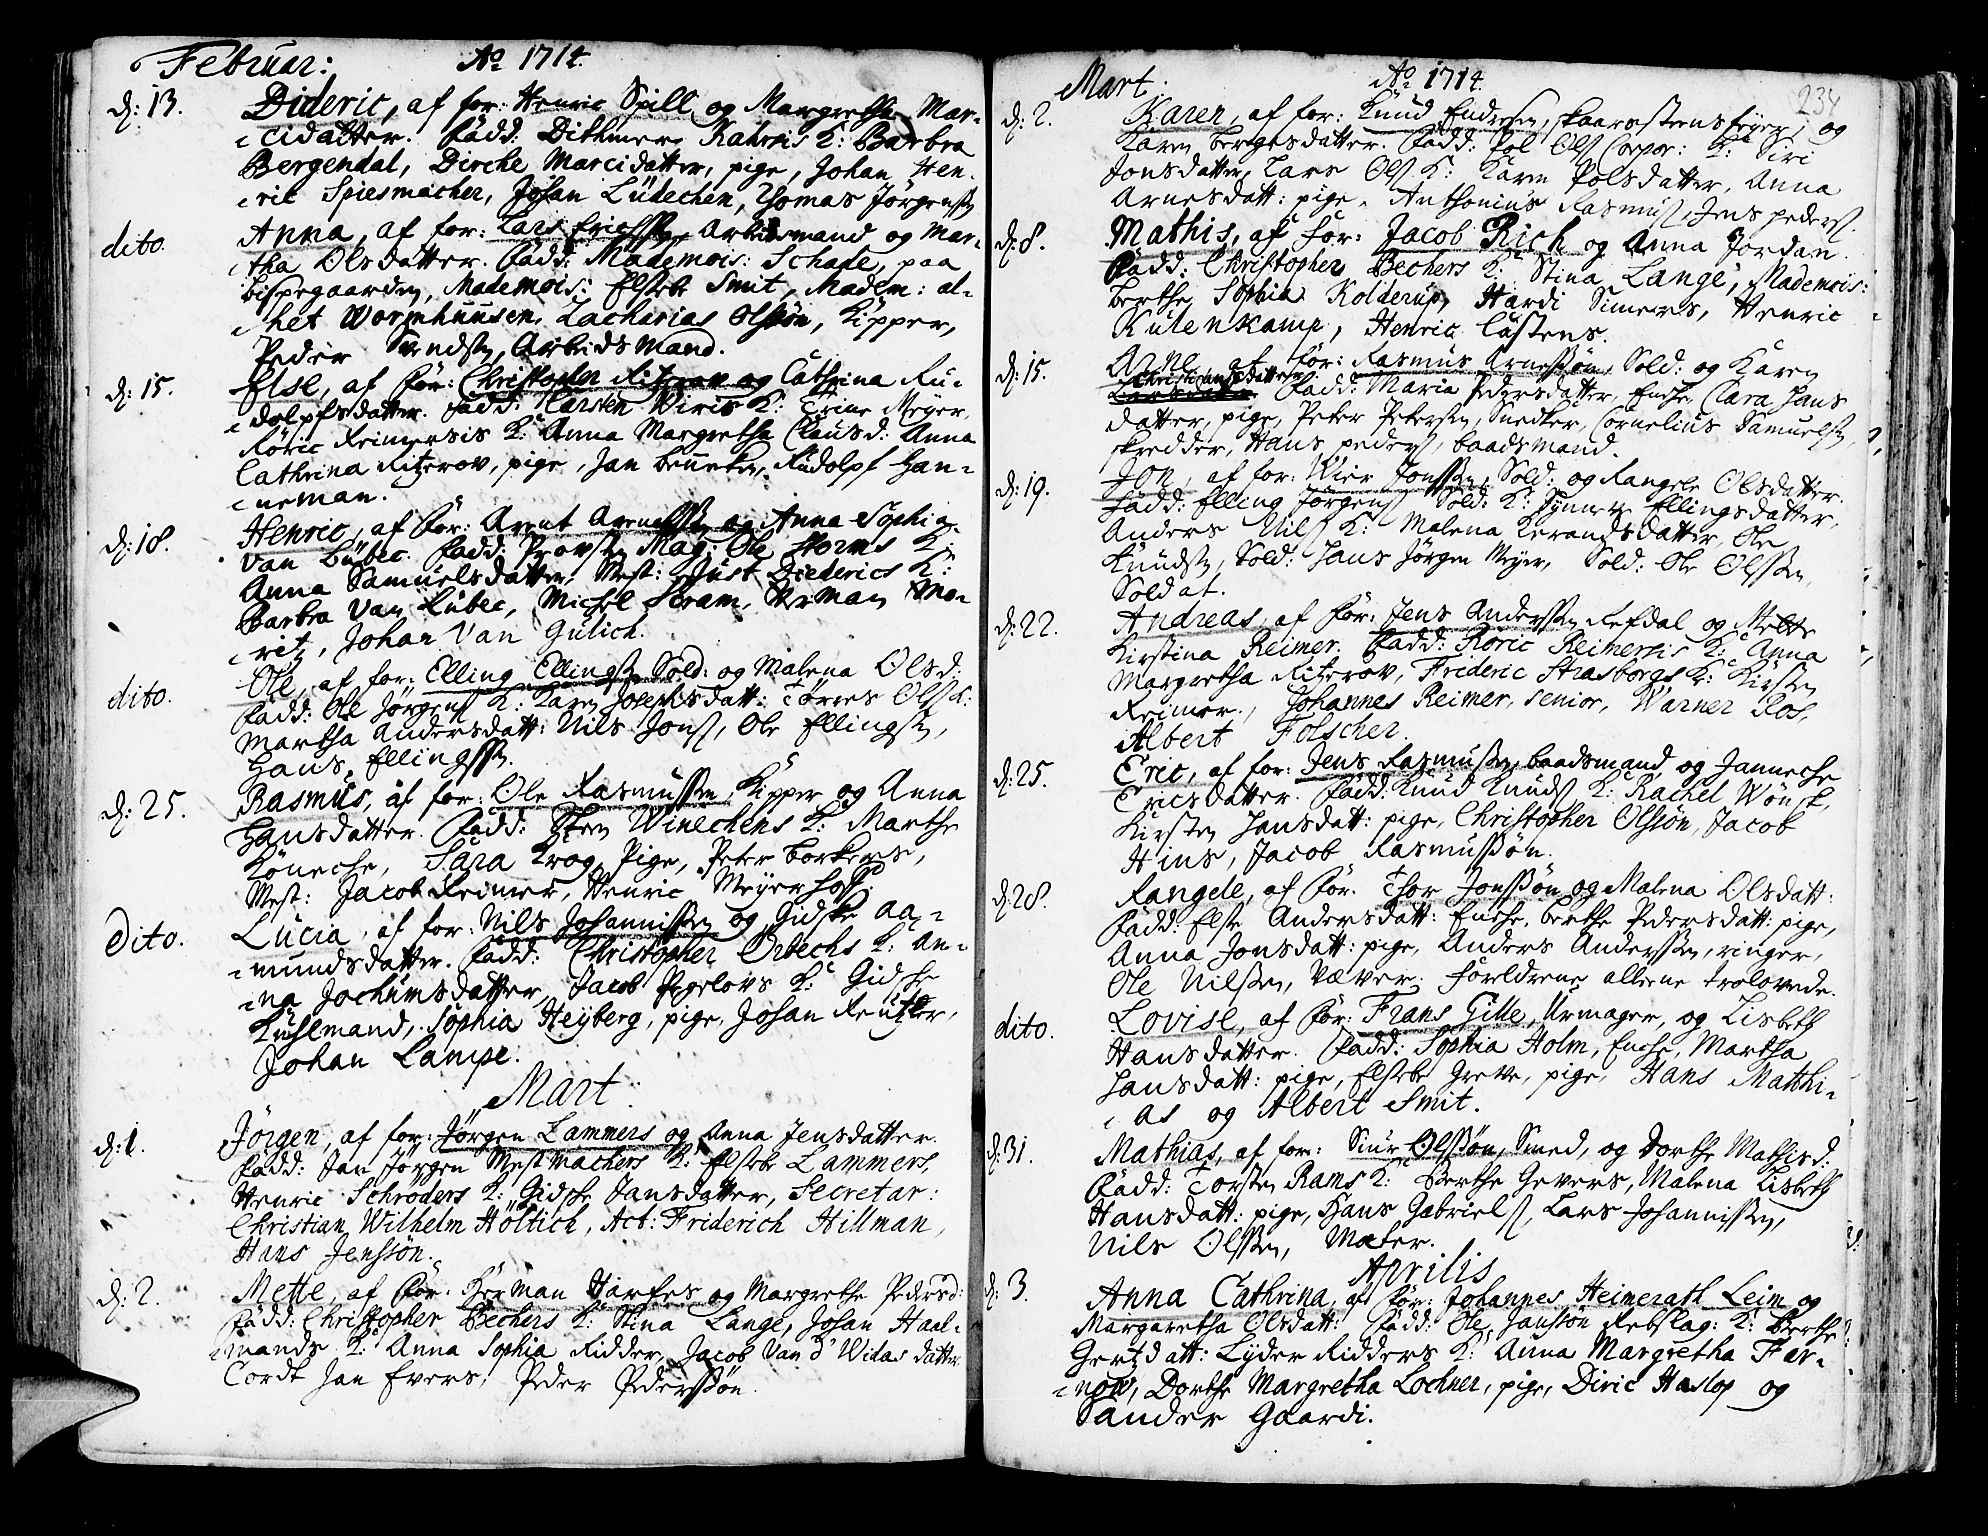 Februar: Ao 1714.
d: 13. Dideric, af for: Henric Spill og Margrethe Mar-
cidatter. Fadd: Dithmer Kahrsis K: Barbra
Bergendal, Dirche Marcidatter, pige, Johan Hen-
ric Spiesmacher, Johan Lüdechen, Thomas Jörgenss
dito. Anna, af for: Lars Erichssen Arbeidsmand og Mar-
tha Olsdatter. Fadd: Mademois: Schade, paa
bispegaarden, Mademois: Elsebe Smit, Madem: al-
het Wormhuusen, Zacharias Olssön, Kipper,
Peder Svendsen, Arbeidsmand.
d: 15. Else, af för: Christopher Ritzerow og Cathrina Ru-
dolphsdatter. Fadd: Carsten Wiris K: Trine Meyer,
Röric Reimersis K: Anna Margretha Clausd: Anna
Cathrina Ritzerov, pige, Jan Benneken, Rudolph Han-
neman.
d: 18. Henric, af för: Arent Arentssen og Anna Sophia
van Lübec. Fadd: Provsten Mag: Ole Storms K:
Anna Samuelsdatter, Mest: Just Diederics K:
Barbra van Lübec, Michel Scram, Herman Mo-
ritz, Johan Van Gülich.
dito. Ole, af for: Elling Ellingss Sold: og Malena Olsd:
Fadd: Ole Jörgenss K: Karen Josephsdatt: Törres Olss K:
Martha Andersdatt: Nils Jonss, Ole Ellingss,
Hans Ellingssen.
d: 25. Rasmus, af for: Ole Rasmussen Kipper og Anna
Hansdatter. Fadd: Sten Winechens K: Marthe
Köneche, Sara Krog, Pige, Peter borkers,
Mest: Jacob Reimer, Henric Meyerhoff.
Dito. Lucia, af for: Nils Johannissen og Gidske Aa-
mundsdatter. Fadd: Christopher Orbechs K: An-
na Jochumsdatter, Jacob Pegelovs K: Gidsche
Kuhlmand, Sophia Heyberg, pige, Johan Reutter,
Johan Lampe.
Mart:
d: 1. Jörgen, af for: Jörgen Lammers og Anna Jensdatter.
Fadd: Jan Jörgen Mestmachers K: Elsebe Lammers,
Henric Schröders K: Gidsche Jansdatter, Secretar:
Christian Wilhelm Höltich, Act: Friderich Hillman,
Hans Jenssön.
d: 2. Mette, af för: Herman Harfes og Margrethe Pedersd:
Fadd: Christopher Bechers K: Stina Lange, Johan Haal-
mands K: Anna Sophia Ridder, Jacob Van d' Widas datter
Cordt Jan Evers, Peder Pederssön.
Mart. Ao 1714. 234
d: 2. Karen, af for: Knud Endresen, skaarstensfeyer, og
Karen bergesdatter. Fadd: Pol Olss Corpor: K: Siri
Jonsdatter, Lars Olss K: Karen Polsdatter, Anna
Arnesdatt: pige, Anthonius Rasmuss, Jens pederss.
d: 8. Mathis, af for: Jacob Rich og Anna Jordan.
Fadd: Christopher Bechers K: Stina Lange, Mademois:
berthe Sophia Kolderup, Hardi Simers, Henric
Kulenkamp, Henric Castens.
d: 15. Arne, af för: Rasmus Arnessön, Sold: og Karen
Christiansdatter. Fadd: Maria Pedersdatter, Enche, Clara Hans
datter, pige, Peter Petersen, Snedker, Cornelius Samuelss,
skredder, Hans pederss, baadsmand.
d: 19. Jon, af for: Wier Jonssen, Sold: og Rangele Olsdatter.
Fadd: Elling Jörgenss Sold: K: Synneve Ellingsdatter,
Anders Nilss K: Malena Kerandsdatter, Ole
Knudsen, Sold: Hans Jörgen Meyer, Sold: Ole Olssen,
Soldat.
d: 22. Andreas, af för: Jens Anderssen Refdal og Mette
Kirstina Reimer. Fadd: Roric Reimersis K: Anna
Margretha Ritzerov, Frederic Strasborgs K: Kirsten
Reimer, Johannes Reimer, senior, Warner Ros,
Albert Folscher.
d: 25. Eric, af for: Jens Rasmussen, baadsmand, og Janneche
Ericsdatter. Fadd: Knud Knuds K: Rachel Wönsk,
Kirsten Hansdatt: pige, Christopher Olssön, Jacob
Hins, Jacob Rasmussön.
d: 28. Rangele, af för: Thor Jonssön og Malena Olsdatt:
Fadd: Else Andersdatt: Enche, berthe Pedersdatt: pige,
Anna Jonsdatt: pige, Anders Anderssen, ringer,
Ole Nilssen, Væver. Forældrene allene trolovede.
dito. Lovise, af för: Frans Gille, Urmager, og Lisbeth
Hansdatter. Fadd: Sophia Holm, Enche, Martha
Hansdatt: pige, Elsebe Greve, pige, Hans Matthi-
as og Albert Smit.
d: 31. Mathias, af for: Siur Olssön, Smed, og Dorthe Mathisd:
Fadd: Torsten Rams K: Berthe Gevers, Malena Lisbeth
Hansdatt: pige, Hans Gabrielss, Lars Johannissen,
Nils Olssen, Mater.
Aprilis
d: 3. Anna Cathrina, af för: Johannes Heinerath Leim og
Margaretha Olsdatt: Fadd: Ole Janssön Rebslag: K: Berthe
Gertzdatt: Lyder Ridders K: Anna Margretha Far-
now, Dorthe Margretha Lochner, pige, Diric Haslop og
Sander Gaardi.